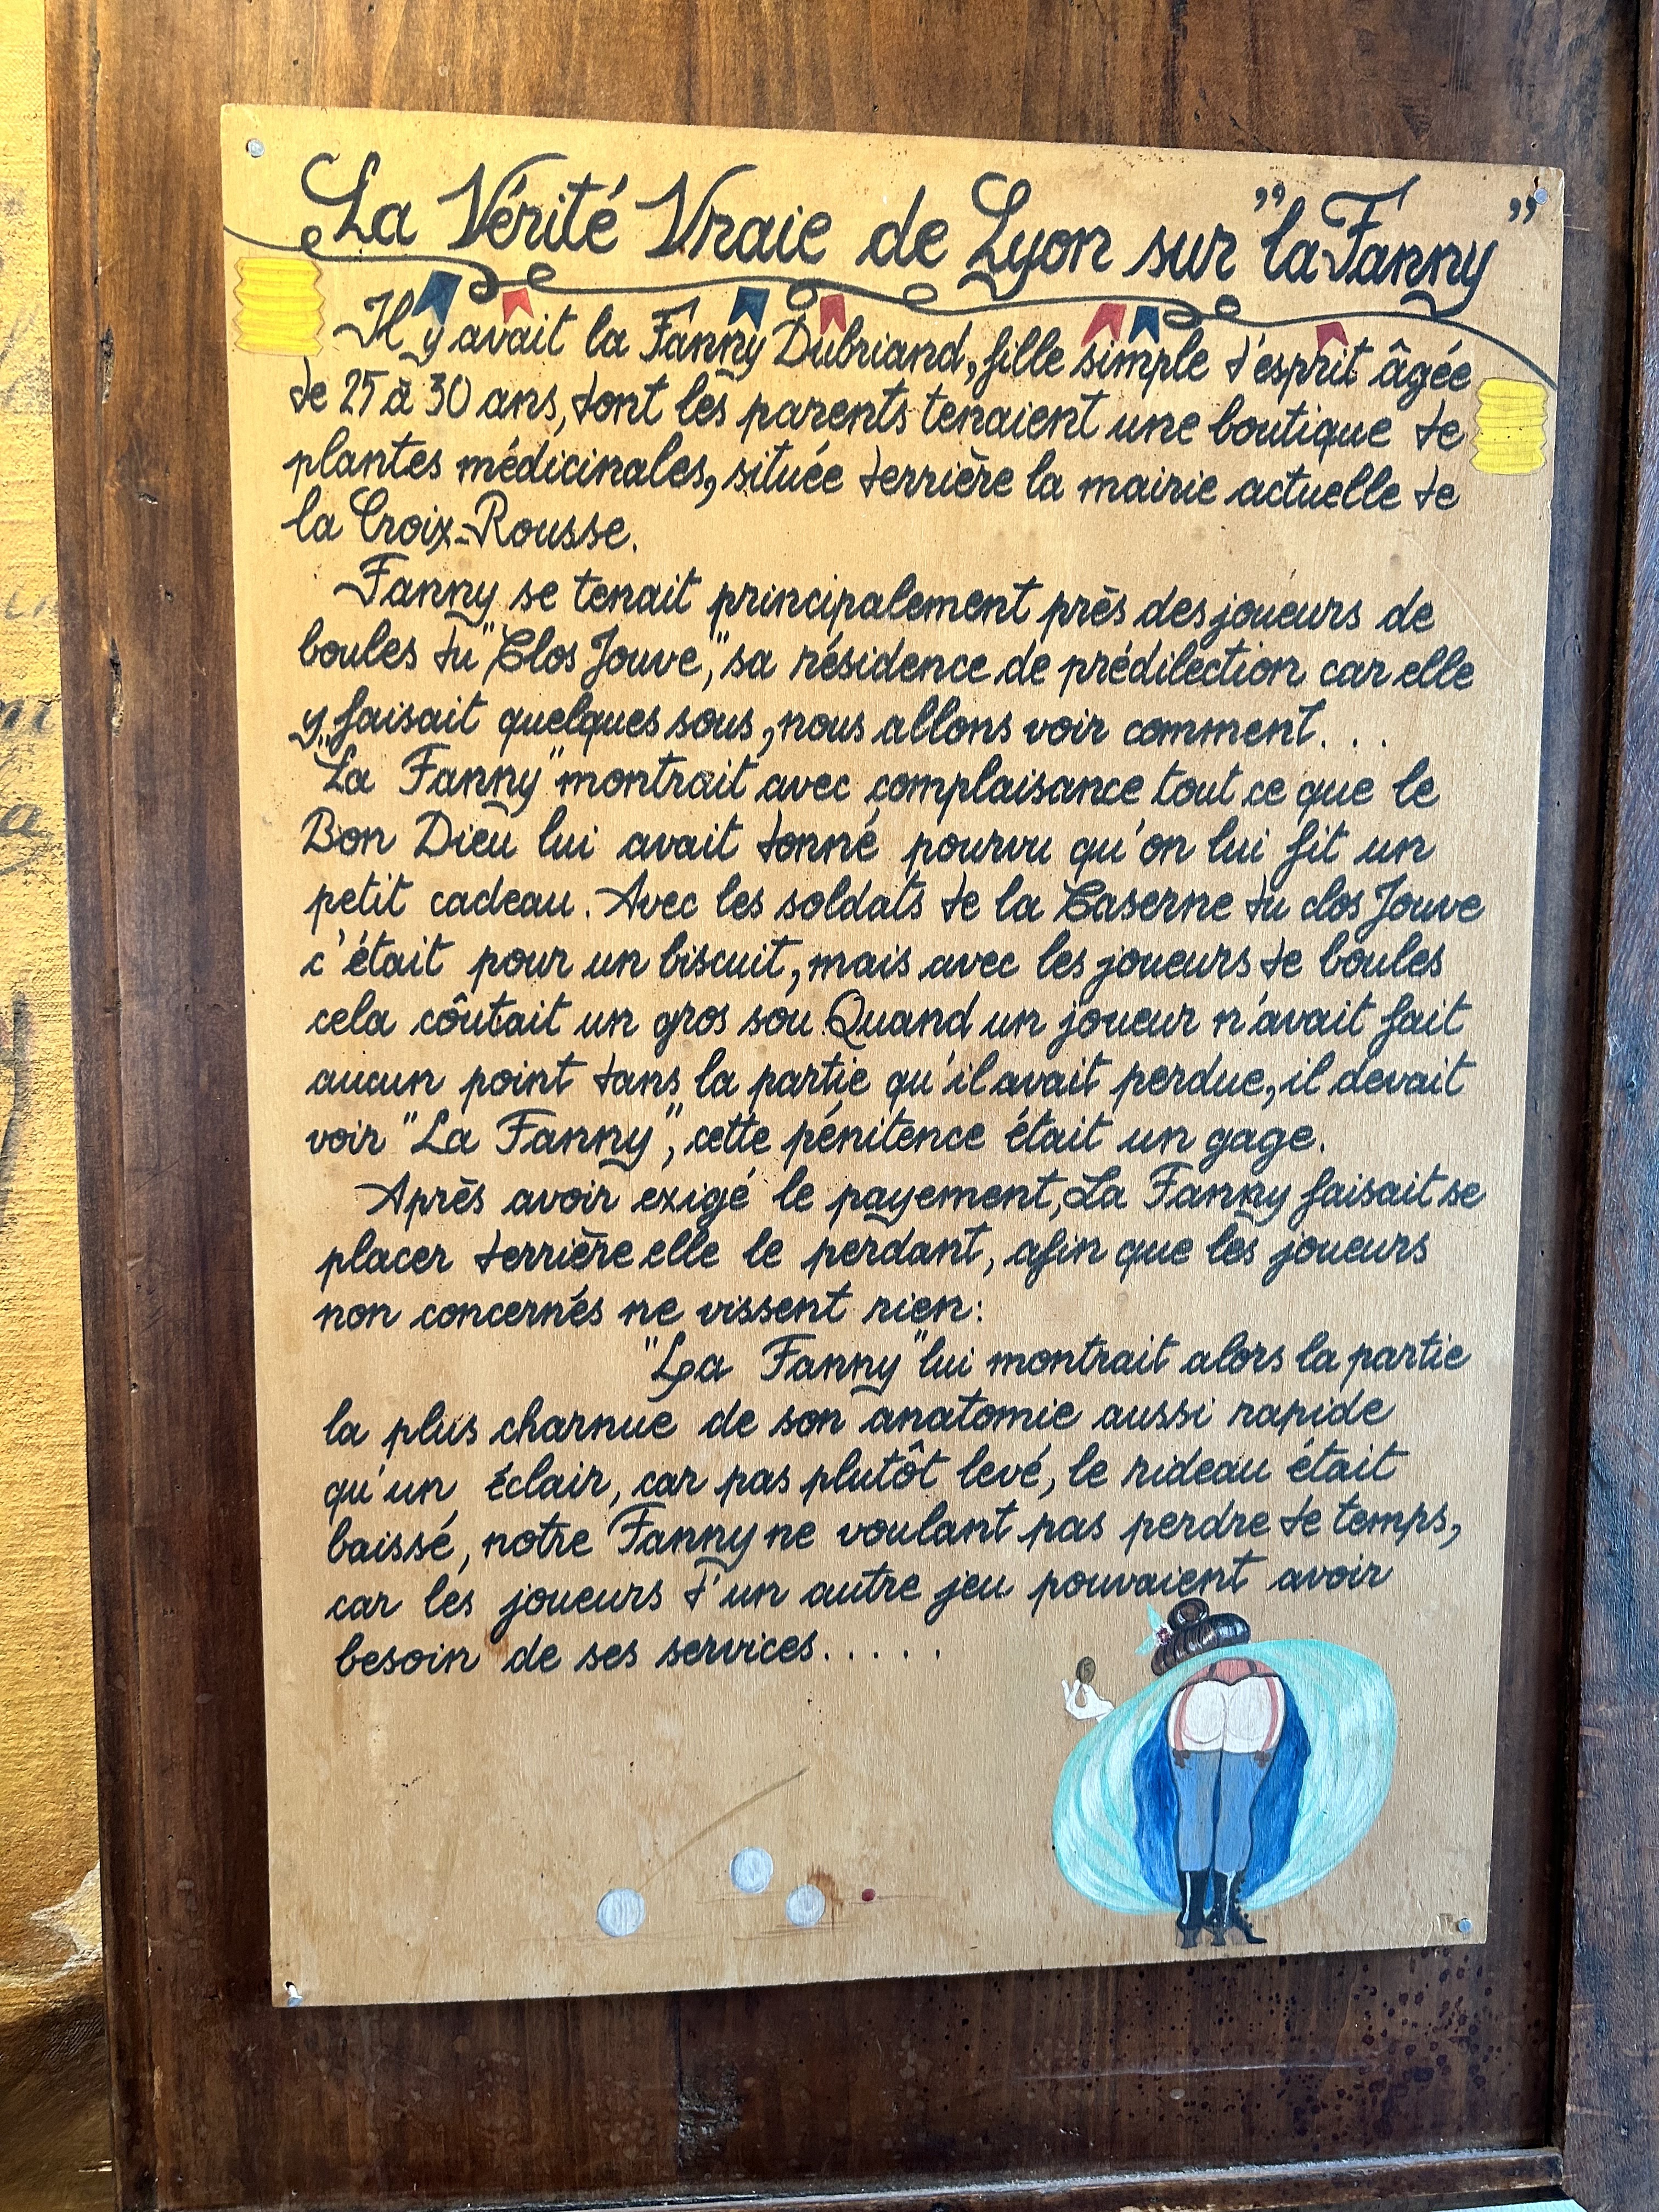 La Vérité Vraie de Lyon sur "la Fanny"
Il y avait la Fanny Dubriand, fille simple d'esprit âgée
de 25 à 30 ans, dont les parents tenaient une boutique de
plantes médicinales, située derrière la mairie actuelle de
la Croix-Rousse.
Fanny se tenait principalement près des joueurs de
boules du "Clos Jouve," sa résidence de prédilection car elle
y faisait quelques sous, nous allons voir comment...
"La Fanny" montrait avec complaisance tout ce que le
Bon Dieu lui avait donné pourvu qu'on lui fit un
petit cadeau. Avec les soldats de la Caserne du clos Jouve
c'était pour un biscuit, mais avec les joueurs de boules
cela côutait un gros sou. Quand un joueur n'avait fait
aucun point dans la partie qu'il avait perdue, il devait
voir "La Fanny", cette pénitence était un gage.
Après avoir exigé le payement, La Fanny faisait se
placer derrière elle le perdant, afin que les joueurs
non concernés ne vissent rien:
"La Fanny" lui montrait alors la partie
la plus charnue de son anatomie aussi rapide
qu'un éclair, car pas plutôt levé, le rideau était
baissé, notre Fanny ne voulant pas perdre de temps,
car les joueurs d'un autre jeu pouvaient avoir
besoin de ses services.....